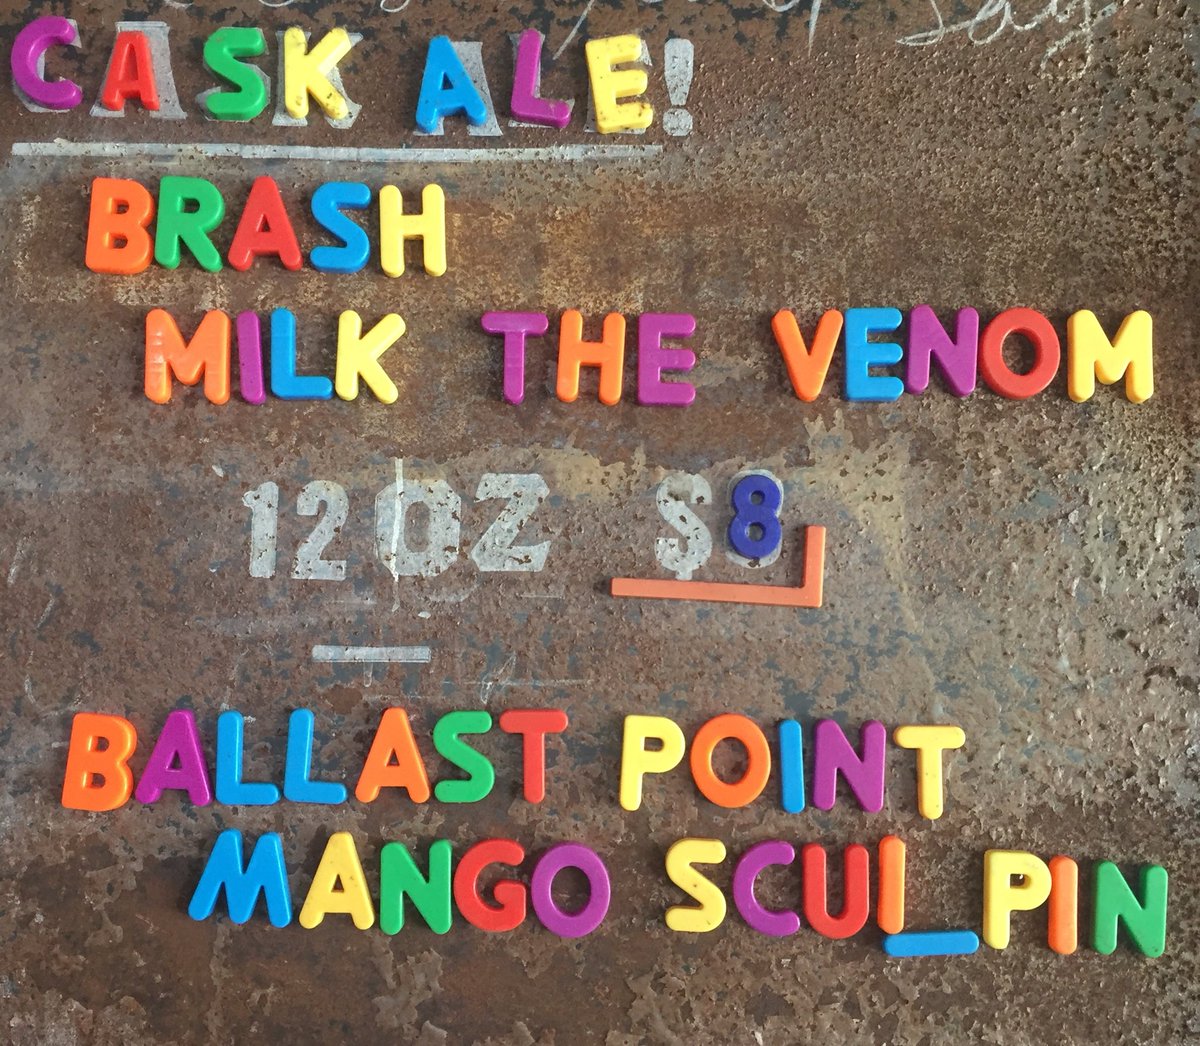 Say
CASK ALE!
BRASH
MILK THE VENOM
12 OZ $8
BALLAST POINT
MANGO SCULPIN